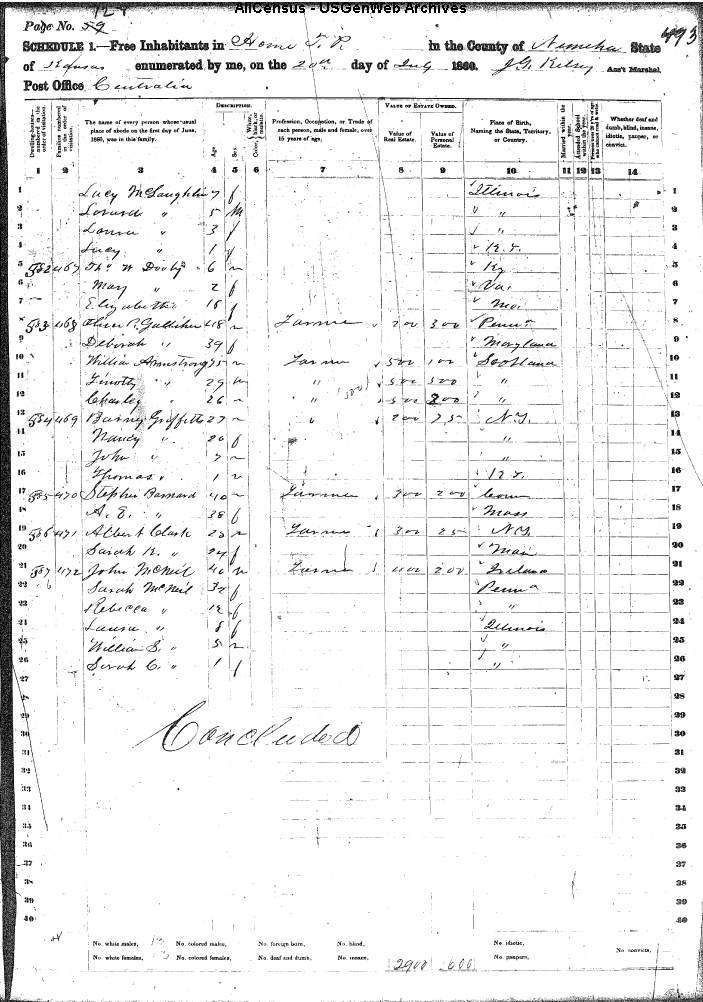 AllCensus - USGenWeb Archives
Page No. 59
493
SCHEDULE 1.—Free Inhabitants in Home T. P. in the County of Nemeha State
of Kansas enumerated by me, on the 20th day of July 1860. J. G. Kelsey Ass't Marshal.
Post Office Centralia
Dwelling-houses—numbered in the order of visitation.
Families numbered in the order of visitation.
The name of every person whose usual place of abode on the first day of June, 1860, was in this family.
DESCRIPTION.
Age
Sex
Color, White, black, or mulatto.
Profession, Occupation, or Trade of each person, male and female, over 15 years of age.
VALUE OF ESTATE OWNED.
Value of Real Estate.
Value of Personal Estate.
Place of Birth, Naming the State, Territory, or Country.
Married within the year.
Attended School within the year.
Persons over 20 y'rs of age who cannot read & write.
Whether deaf and dumb, blind, insane, idiotic, pauper, or convict.
1 2 3 4 5 6 7 8 9 10 11 12 13 14
1 Lucy McLaughlin 7 f Illinois 1
2 " 5 m " 2
3 " 3 f " 3
4 Lucy " 1 f K. T. 4
5 532 467 Thos W 6 m Ky 5
6 Mary " 2 f Va. 6
7 Elizabeth " 16 f Mo. 7
8 533 468 Oliver P. 48 m Farmer 200 300 Penn 8
9 Deborah " 39 f Maryland 9
10 William Armstrong 75 m Farmer 500 100 Scotland 10
11 Timothy " 29 m " 500 500 " 11
12 Charley " 26 m " (500) 500 800 " 12
13 534 469 Barny Griffith 27 m " 200 75 N.Y. 13
14 Nancy " 20 f " 14
15 John " 2 m " 15
16 Thomas " 1 m K. T. 16
17 535 470 Stephen Barnard 40 m Farmer 300 200 Conn 17
18 A. E. " 38 f Mass 18
19 536 471 Albert Clark 25 m Farmer 300 25 N.Y. 19
20 Sarah K. " 24 f 20
21 537 472 John McNeil 40 m Farmer 400 200 Ireland 21
22 Sarah McNeil 32 f Penna 22
23 Rebecca " 12 f " 23
24 Laura " 8 f Illinois 24
25 William S. " 5 m " 25
26 Sarah C. " 1 f " 26
27 27
28 28
29 29
30 Concluded 30
31 31
32 32
33 33
34 34
35 35
36 36
37 37
38 38
39 39
40 40
No. white males, No. colored males, No. foreign born, No. blind, No. idiotic, No. convicts,
No. white females, No. colored females, No. deaf and dumb, No. insane, 2900 600 No. paupers,